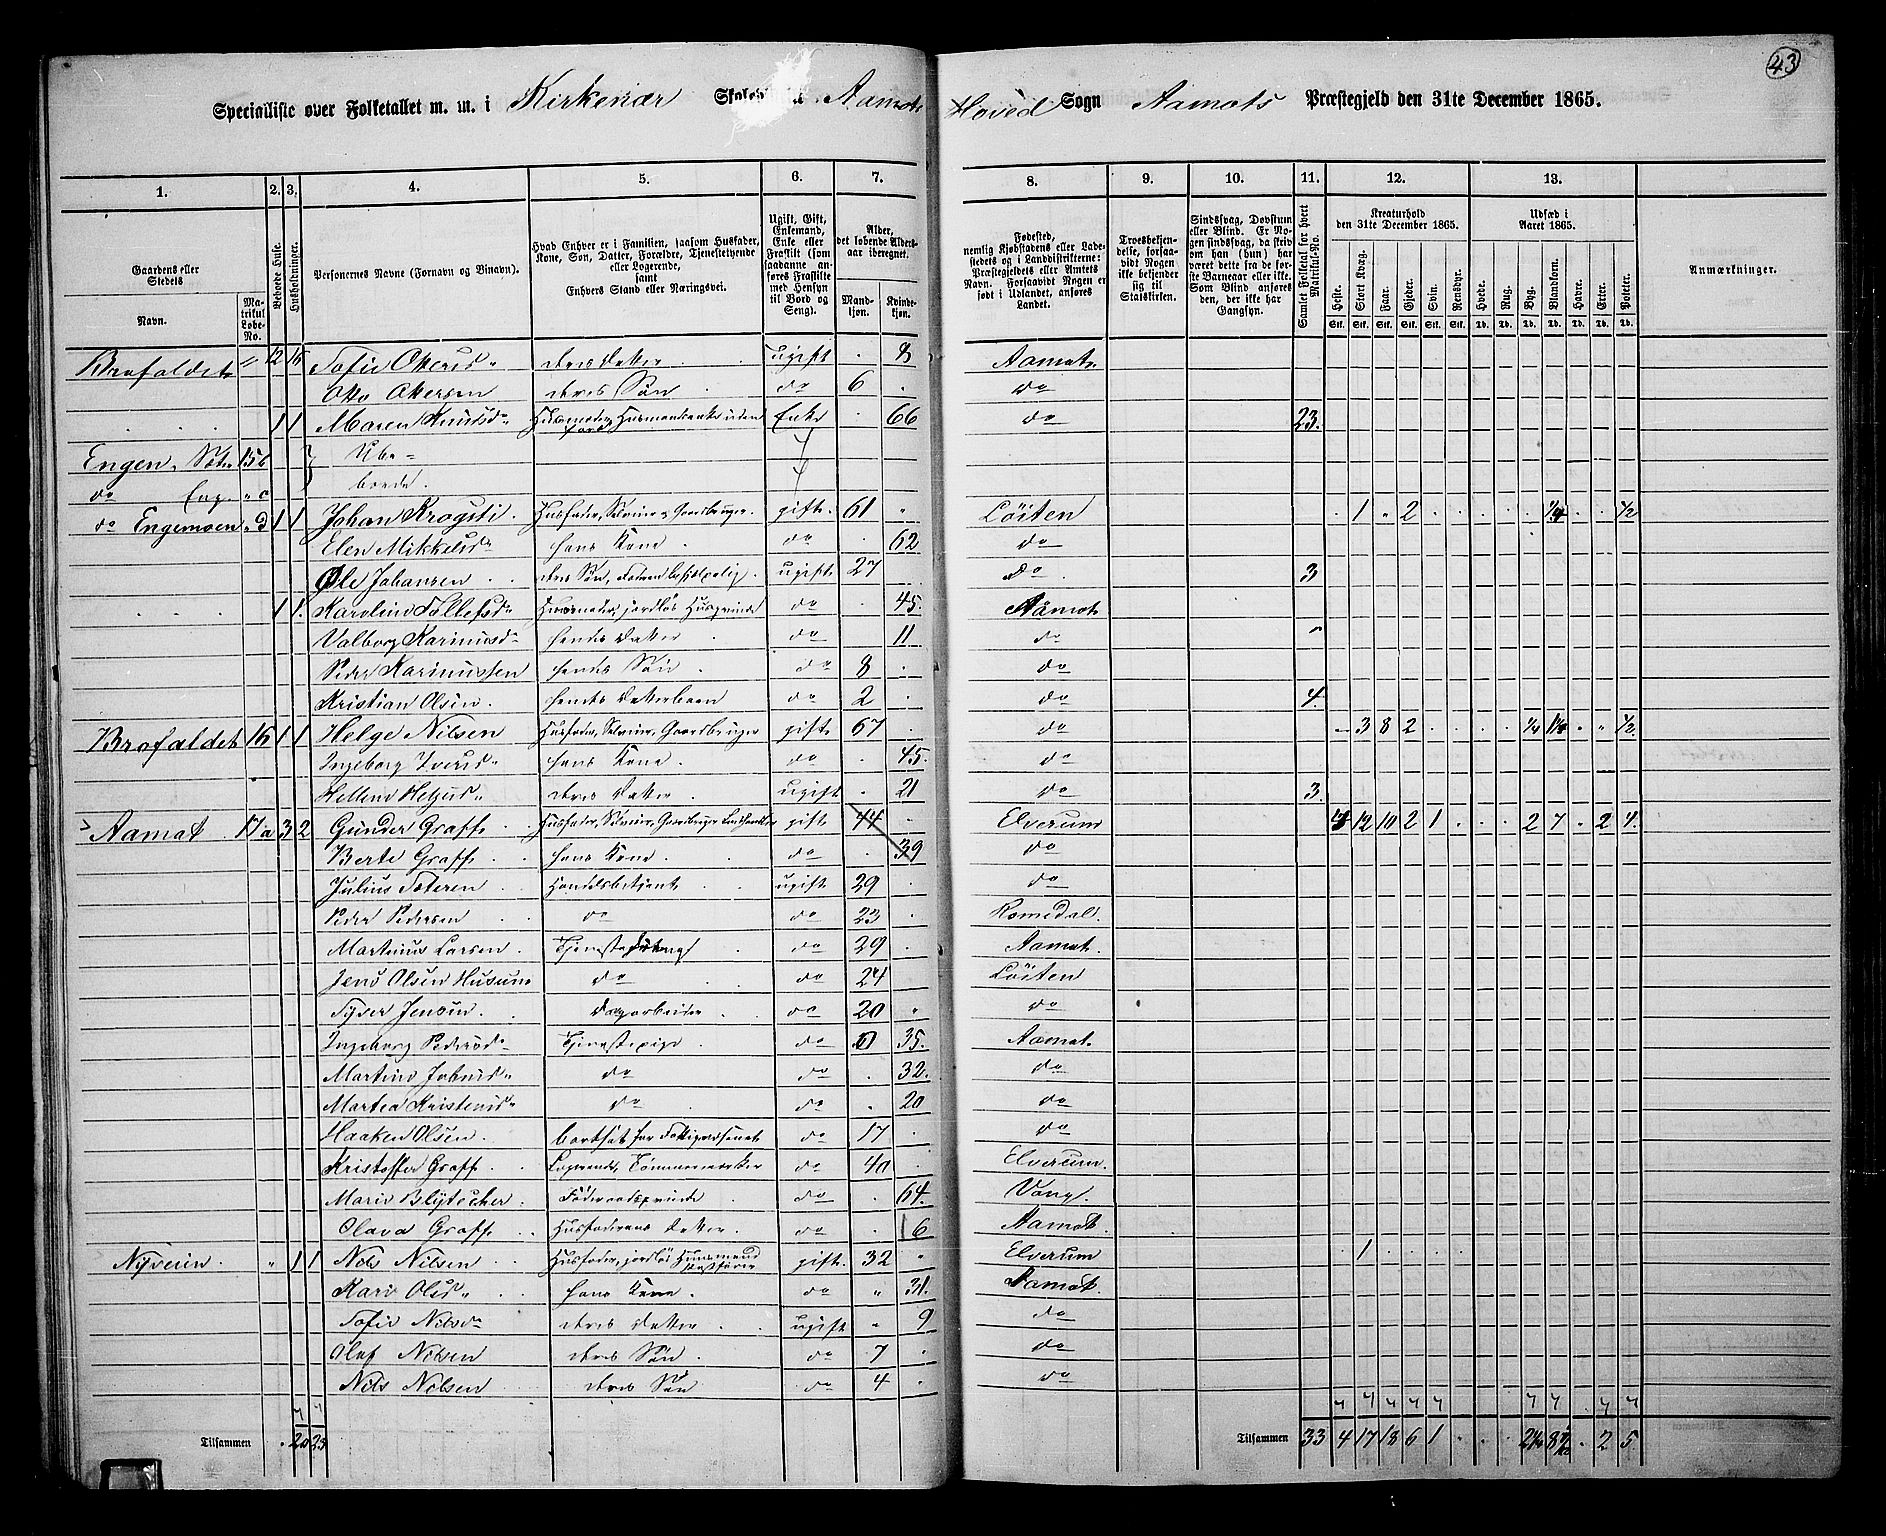 43
Specialliste over Folketallet m. m. i Kirkenær Skoledistrikt Aamots Hoved Sogn Aamots Præstegjeld den 31te December 1865.
1. 2. 3. 4. 5. 6. 7. 8. 9. 10. 11. 12. 13.
Gaardens eller Stedets
Navn.
Matrikul Løbe-No.
Beboede Huse.
Husholdninger.
Personernes Navne (Fornavn og Tilnavn).
Hvad Enhver er i Familien, saasom Husfader, Kone, Søn, Datter, Forældre, Tjenestetyende eller Logerende, samt Enhvers Stand eller Næringsvei.
Ugift, Gift, Enkemand, Enke eller Fraskilt (som saadanne anføres Fraskilte med Hensyn til Bord og Seng).
Alder, det løbende Alders-aar iberegnet.
Mand-kjøn.
Kvinde-kjøn.
Fødested, nemlig Kjøbstadens eller Ladestedets og i Landdistrikterne: Præstegjeldets eller Amtets Navn. Forsaavidt Nogen er født i Udlandet, anføres Landet.
Troesbekjendelse, forsaavidt Nogen ikke bekjender sig til Statskirken.
Sindssvag, Døvstum eller Blind. Er Nogen sindssvag, da skriv om han (hun) har været dette fra de første Barneaar eller ikke. Som Blind anføres den, der ikke har Gangsyn.
Samlet Folketal for hvert Matrikul-No.
Kreaturhold den 31te December 1865.
Heste. Stort Kvæg. Faar. Gjeder. Svin. Rensdyr.
Udsæd i Aaret 1865.
Hvede. Rug. Byg. Blandkorn. Havre. Erter. Poteter.
Anmærkninger.
Brofaldet " 12 16 Sofie Ottersd. deres Datter ugift 8 Aamot
Otto Ottersen deres Søn do 6 do
1 1 Maren Knudsd. Enke 66 do 23.
Engen, Sæter 15 b Ube-
do Eng. " c boede.
do Engemoen " d 1 1 Johan Krogsti Husfader, Selveier, Gaardbruger gift 61 " Löiten 1 " 2 1/4 1/2
Elen Mikkelsd. hans Kone do 62 do
Ole Johansen deres Søn, Faderen behjelpelig ugift 27 do 3
1 1 Karoline Tollefsd. do 45 Aamot
Valborg Karinusd. hendes Datter do 11 do
Peder Karinussen hendes Søn do 8 do
Kristian Olsen hendes Datterbarn do 2 do 4.
Brofaldet 16 1 1 Helge Nilsen Husfader, Selveier, Gaardbruger gift 67 do 3 8 2 1/2
Ingeborg Iversd. hans Kone do 45. do
Hellene Helgesd. deres Datter ugift 21 do 3.
Aamot 17 a 3 2 Gunder Graff Husfader, Selveier, Gaardbruger Landhandler gift 44 Elverum 12 10 2 1 2 7 2 4.
Berte Graff hans Kone do 39 do
Julius Sæteren Handelsbetjent ugift 29 do
Peder Pedersen do do 23 Romedal.
Martinus Larsen do 29 Aamot.
Jens Olsen Husum do do 24 Löiten
Syver Jensen Dagarbeider do 20 " do
Ingeborg Pedersd. Tjenestepige do 35. Aamot.
Martine Johnsd. do do 32. do
Martea Kristensd. do do 20 do
Haaken Olsen bortsat for Fattigvæsenet do 17 do
Kristoffer Graff Logerende, Tømmermærker do 40 Elverum.
Marie Blytecher Føderaadskvinde do 64. Vang.
Olava Graff Husfaderens Datter do 6 Aamot.
Nyveien " 1 1 Nils Nilsen Husfader, jordløs Huusmand gift 32 " Elverum 1
Kari Olsd. hans Kone do " 31. Aamot.
Sofie Nilsd. deres Datter ugift " 9 do
Olaf Nilsen deres Søn do 7 do
Nils Nilsen deres Søn do 4 do
Tilsammen 20 23 Tilsammen 33 4 17 18 6 1 2 5